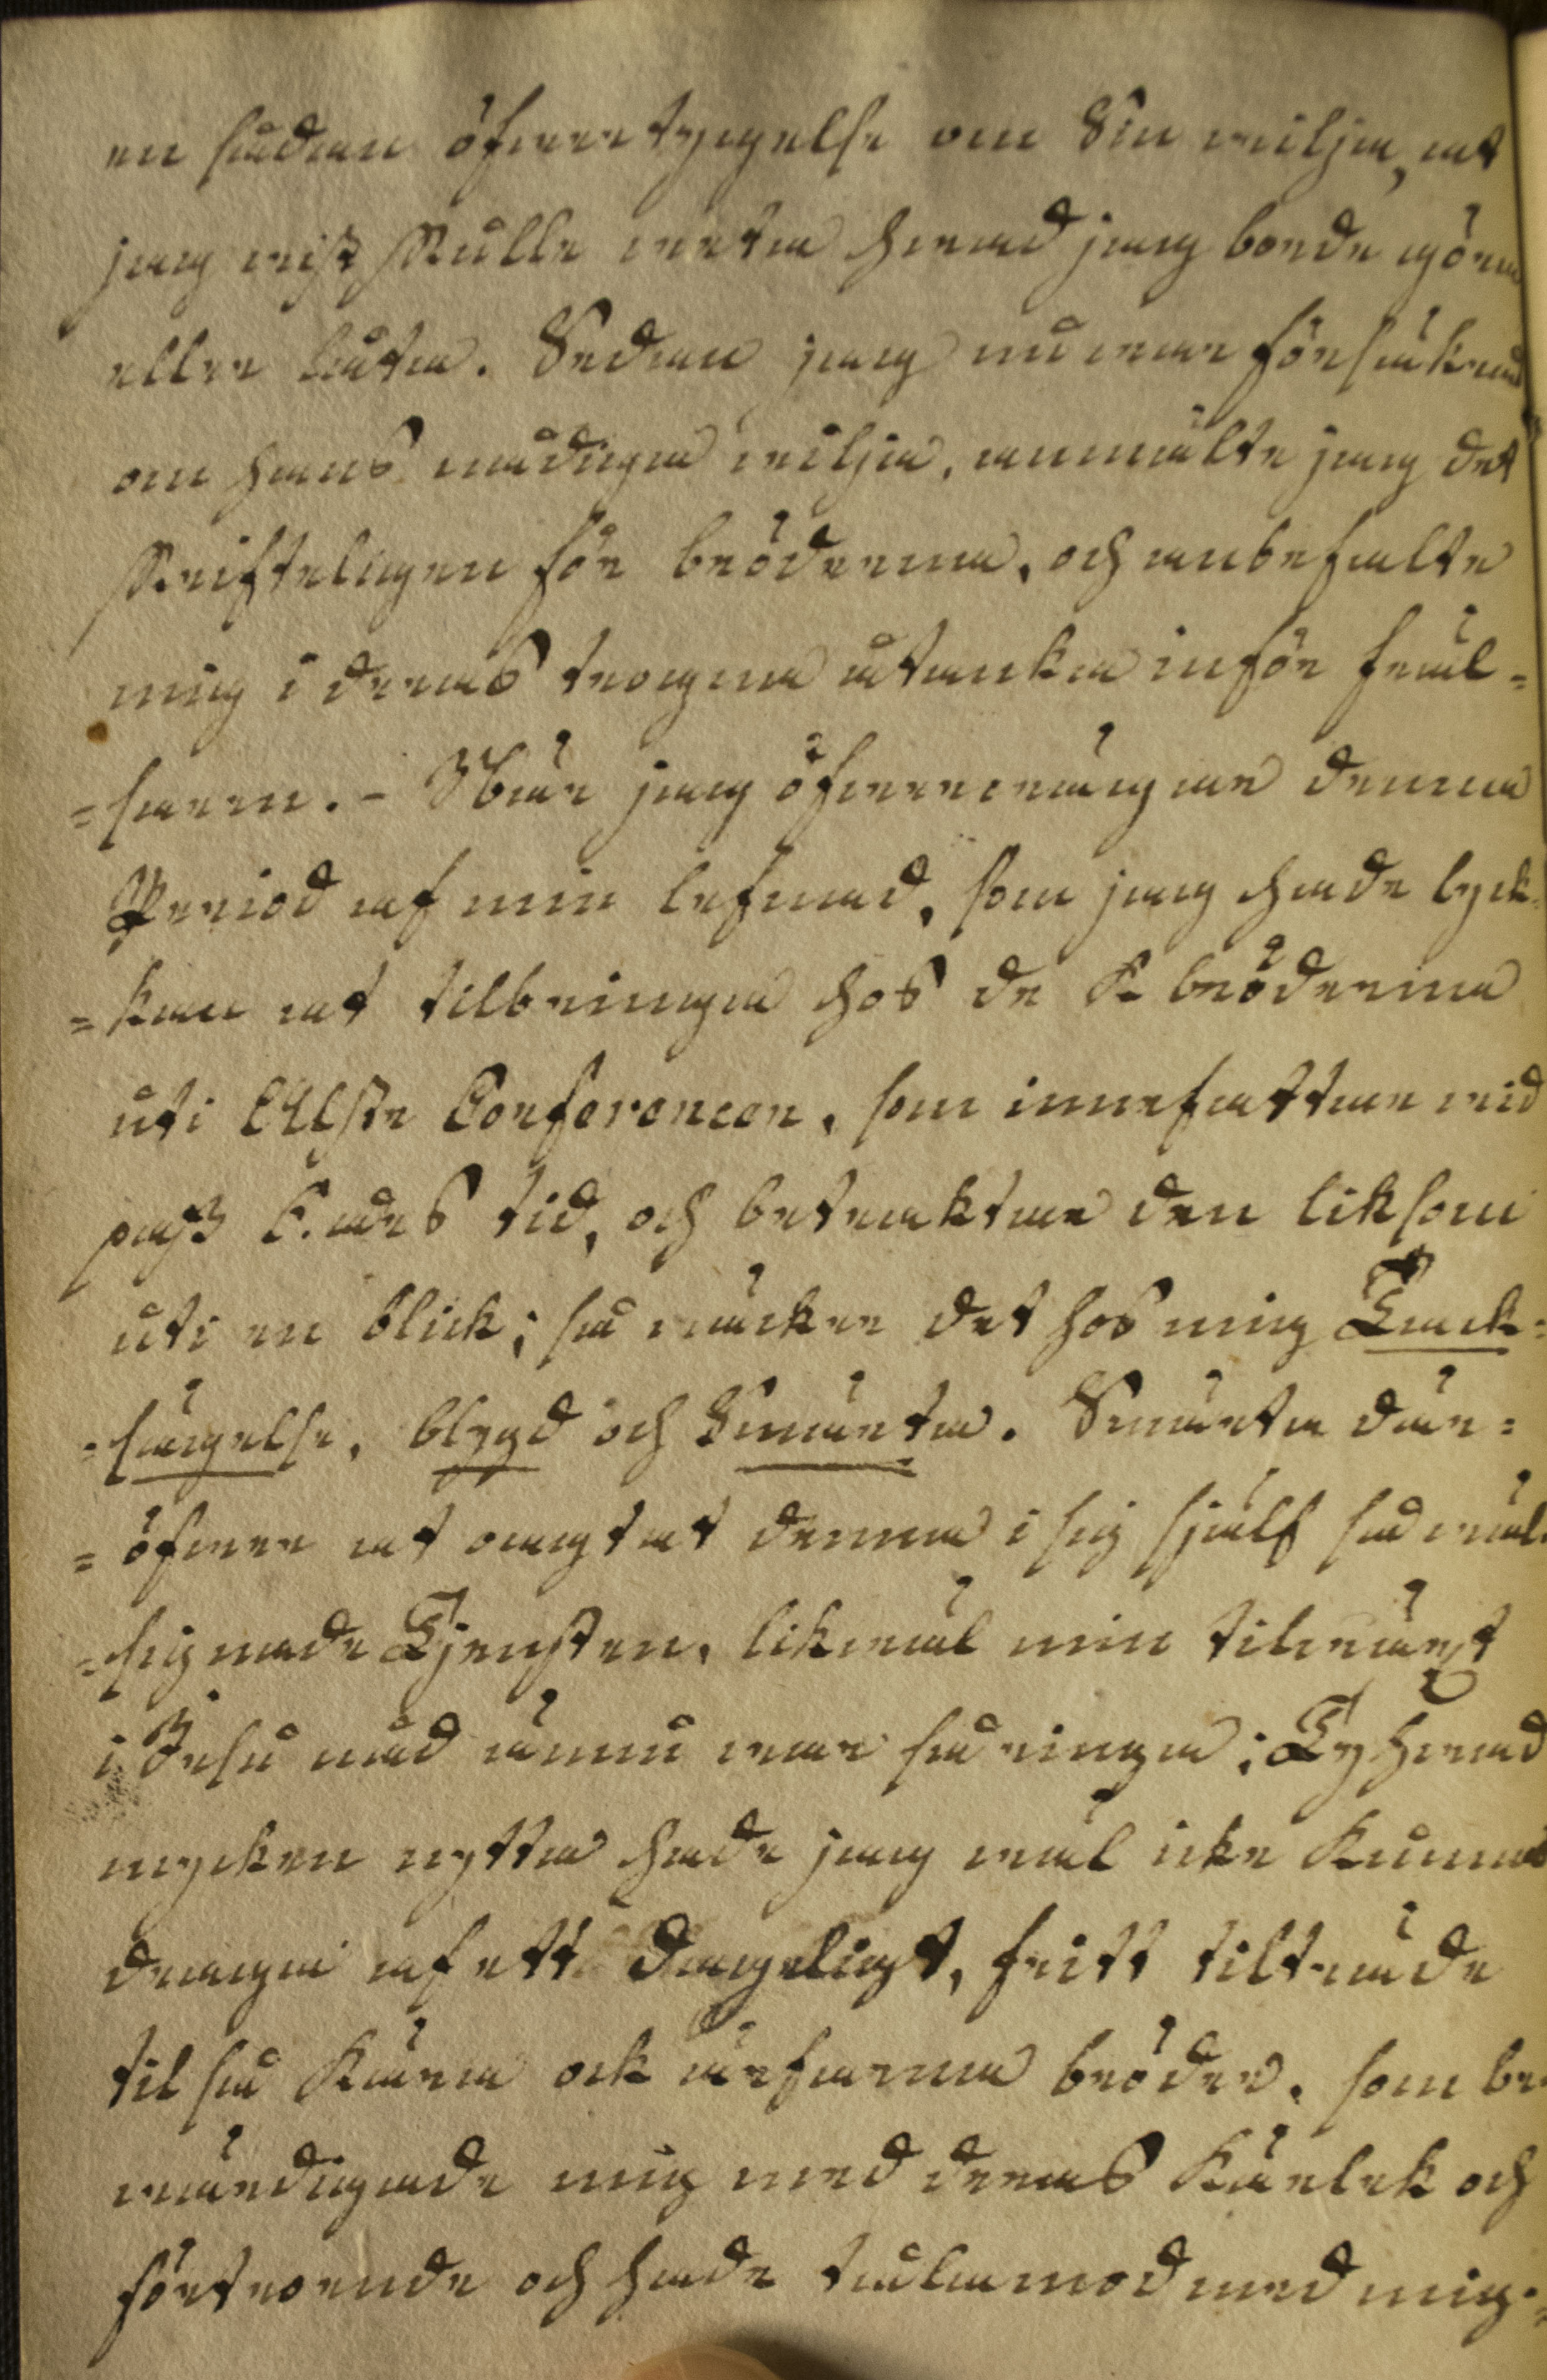 en sådan öfwertygelse om Sin wilja, at
jag wist skulle weta hwad jag borde göra
eller låta. Sedan jag nu war försäkrad
om hans nådiga wilja, anmälte jag det
skrifteligen för bröderna, och anbefalte
mig i deras trogna åtanka inför Fräl=
=saren. - När jag öfwerwägar denna
Period af min lefnad, som jag hade lyck=
=kan at tilbringa hos de K bröderna
uti Elste Conferencen, som innefattar wid
pass 6. åres tid, och betraktar den liksom
uti en blick; så wäcker det hos mig Tack=
=sägelse, blygd och Smärta. Smärta där=
=öfwer at oagtat denna i sig sjelf så wäl=
=signade Tjensten, likwäl min tilwäxt
i Jesu nåd ännu war så ringa; Ty hwad
mycken nytta hade jag wäl icke kunnat
draga af ett dageligt, fritt tilträde
til så kära ock ärfarna bröder, som be=
wärdigade mig med deras kärlek och
förtroende och hade tålamod med mig.=